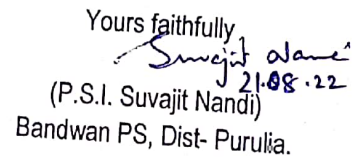 Yours faithfully,
Suvajit Nandi
21.08.22
(P.S.I. Suvajit Nandi)
Bandwan PS, Dist- Purulia.